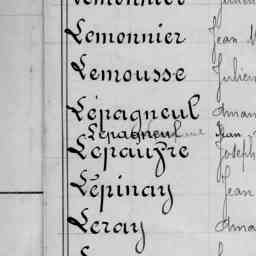 Lemonnier
Lemonnier Jean
Lemousse Julien
Lépagneul Aman
Lepagneul Jean
Lepauvre Joseph
L'épinay Jean
Leray Ama